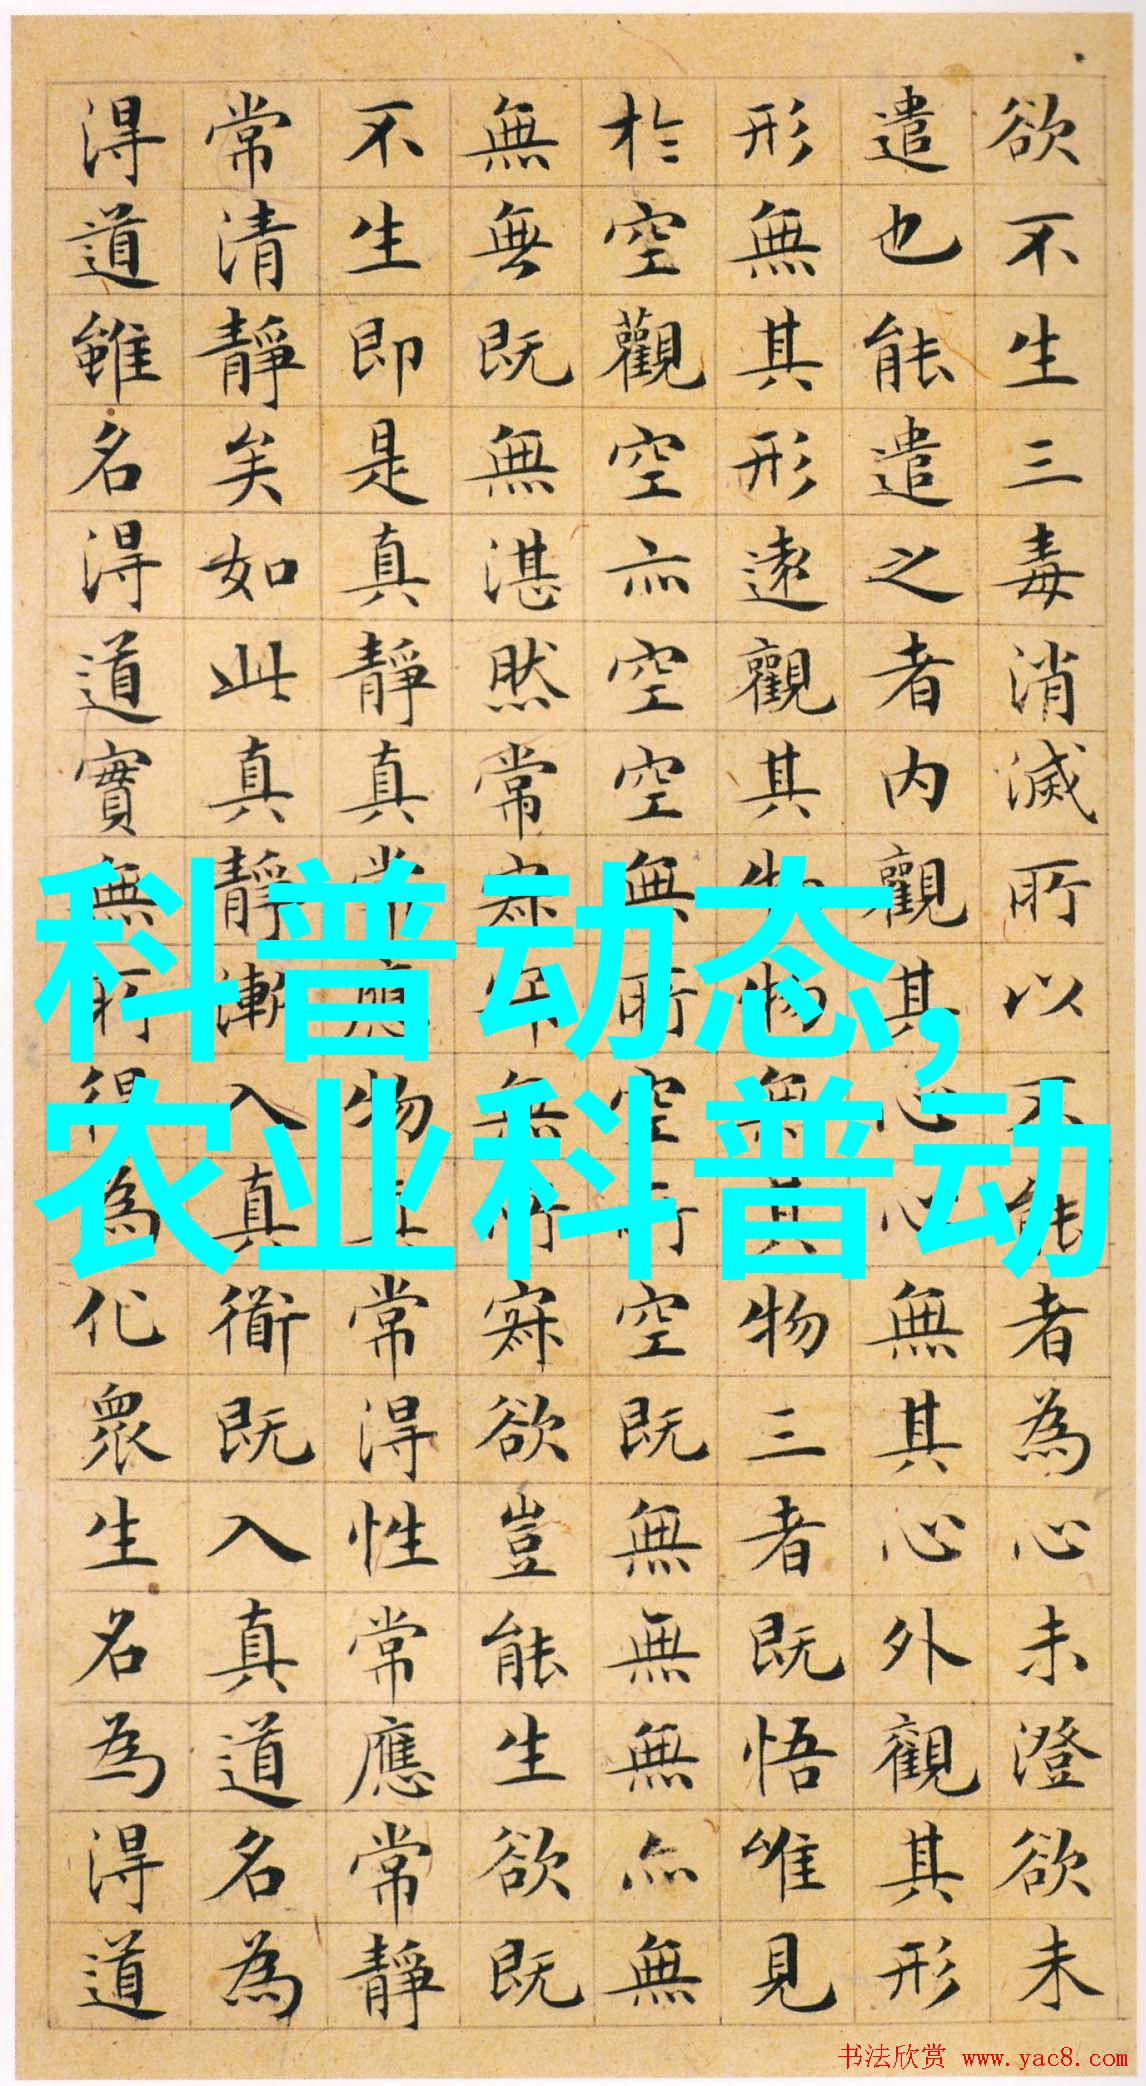 欲不生三毒消滅所以不能者為心未澄欲未
遣也能遣之者内觀其心心無其心外觀其形
形無其形遠觀其物物無其物三者既悟唯見
於空觀空亦空空無所空所空既無無無亦無
無無既無湛然常寂寂無所寂欲豈能生欲既
不生即是真靜真常應物真常得性常應常靜
常清靜矣如此真靜漸入真衜既入真道名為
得道雖名得道實無所得為化眾生名為得道
科普动态,
农业科普动
书法欣赏 www.yac8.com